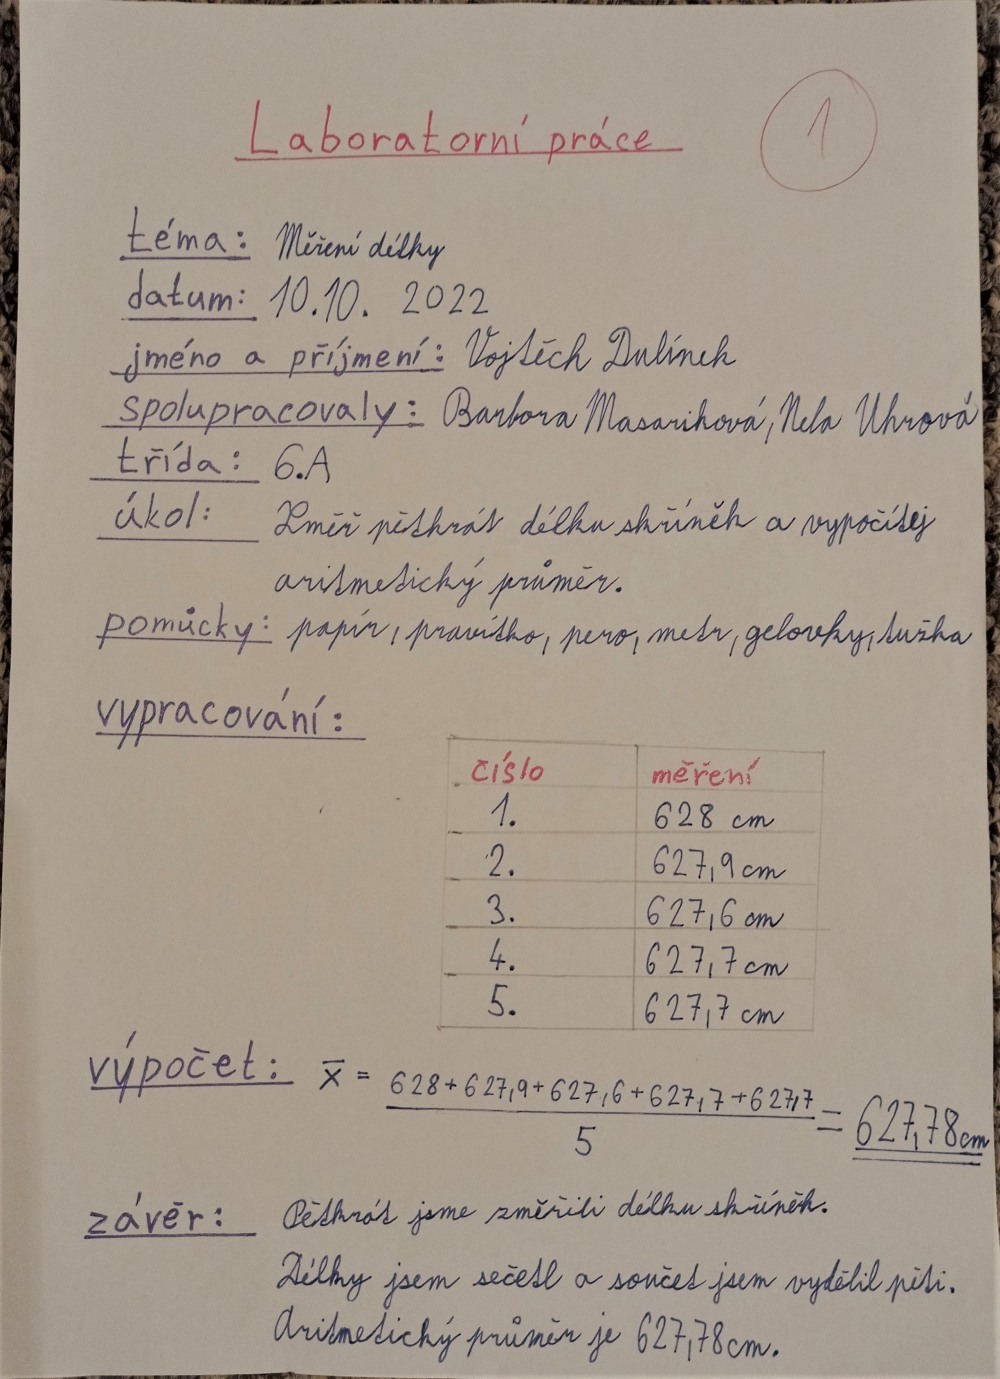 Laboratorní práce 1
téma: Měření délky
datum: 10.10. 2022
jméno a příjmení: Vojtěch Dulínek
spolupracovaly: Barbora Masariková, Nela Uhrová
třída: 6.A
úkol: Změř pětkrát délku skříněk a vypočítej
aritmetický průměr.
pomůcky: papír, pravítko, pero, metr, gelovky, tužka
vypracování:
číslo měření
1. 628 cm
2. 627,9 cm
3. 627,6 cm
4. 627,7 cm
5. 627,7 cm
výpočet: x̄ = 628+627,9+627,6+627,7+627,7 = 627,78 cm
5
závěr: Pětkrát jsme změřili délku skříněk.
Délky jsem sečetl a součet jsem vydělil pěti.
Aritmetický průměr je 627,78 cm.